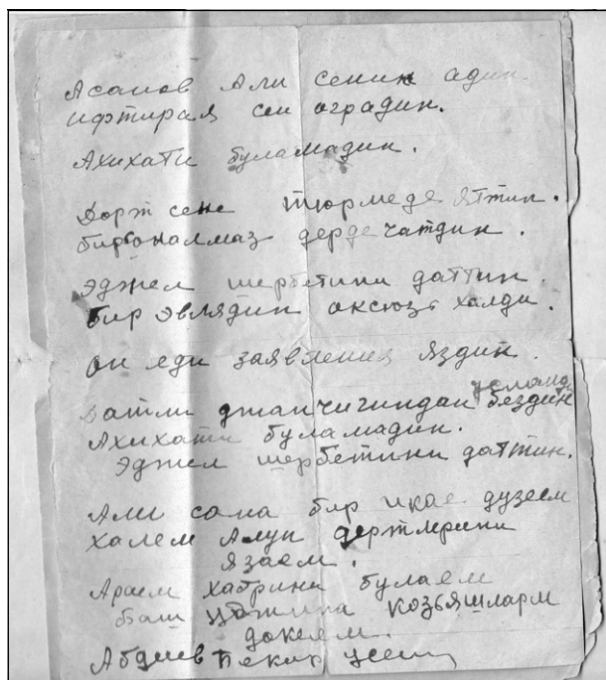 Асанов Али сенин адин
ифтирая сен оградин.
Ахихати буламадин.
Дорт сене тюрмеде яттин.
бир оналмаз дерде чатдин.
Эджел шербетини даттин.
бир эвлядин оксюзь халди.
он еди заявления яздин.
Татли джанчигиндан бездин
Ахихати буламадин.
Эджел шербетини даттин.
Али сана бир икае дузеем
халем Алуп дертлерини
язаем.
Араем хабрини булаем
баш козьяшларм
докеем.
Абдиев Бекир